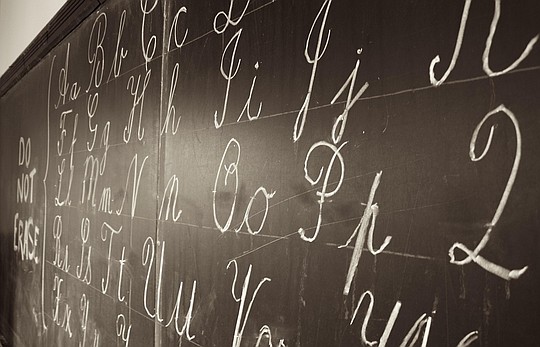 DO
NOT
ERASE
Aa Bb Cc
Ff Gg Hh Ii Jj K
Ll Mm Nn Oo Pp Q
Rr Ss Tt Uu Vv
Xx